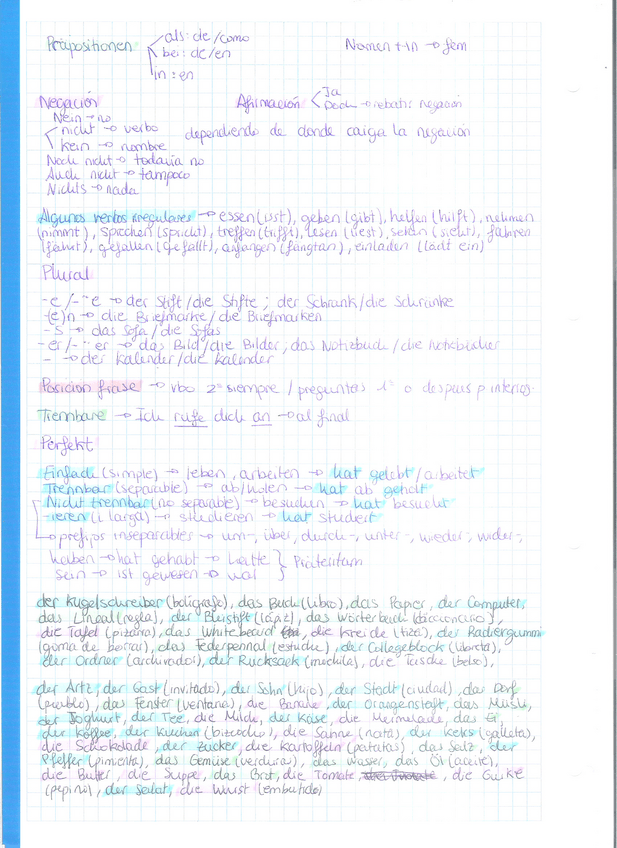 Präpositionen
als: de/como
bei: de/en
in: en
Nomen + in → fem
Negación
Nein → no
nicht → verbo
kein → nombre
dependiendo de donde caiga la negación
Noch nicht → todavía no
Auch nicht → tampoco
Nichts → nada
Afirmación
Ja
Doch → rebatir negación
Algunos verbos irregulares → essen (isst), geben (gibt), helfen (hilft), nehmen
(nimmt), sprechen (spricht), treffen (trifft), lesen (liest), sehen (sieht), fahren
(fährt), gefallen (gefällt), anfangen (fängt an), einladen (lädt ein)
Plural
-e/-¨e → der Stift/die Stifte; der Schrank/die Schränke
-(e)n → die Briefmarke/die Briefmarken
-s → das Sofa/die Sofas
-er/-¨er → das Bild/die Bilder, das Notizbuch/die Notizbücher
- → der Kalender/die Kalender
Posición frase → vbo 2º siempre / preguntas 1º o después p interrog.
Trennbare → Ich rufe dich an → al final
Perfekt
Einfach (simple) → leben, arbeiten → hat gelebt/arbeitet
Trennbar (separable) → ab/holen → hat ab geholt
Nicht trennbar (no separable) → besuchen → hat besucht
-ieren (i larga) → studieren → hat studiert
prefijos inseparables → um-, über, durch-, unter-, wieder-, wider-,
haben → hat gehabt → hatte
sein → ist gewesen → war
Präteritum
der Kugelschreiber (bolígrafo), das Buch (libro), das Papier, der Computer,
das Lineal (regla), der Bleistift (lápiz), das Wörterbuch (diccionario),
die Tafel (pizarra), das Whiteboard, die Kreide (tiza), der Radiergummi
(goma de borrar), das Federpennal (estuche), der Collegeblock (libreta),
der Ordner (archivador), der Rucksack (mochila), die Tasche (bolso),
der Artz, der Gast (invitado), der Sohn (hijo), der Stadt (ciudad), das Dorf
(pueblo), das Fenster (ventana), die Banane, der Orangensaft, das Müsli,
der Joghurt, der Tee, die Milch, der Käse, die Marmelade, das Ei,
der Kaffee, der Kuchen (bizcocho), die Sahne (nata), der Keks (galleta),
die Schokolade, der Zucker, die Kartoffeln (patatas), das Salz, der
Pfeffer (pimienta), das Gemüse (verdura), das Wasser, das Öl (aceite),
die Butter, die Suppe, das Brot, die Tomate, die Gurke
(pepino), der Salat, die Wurst (embutido)